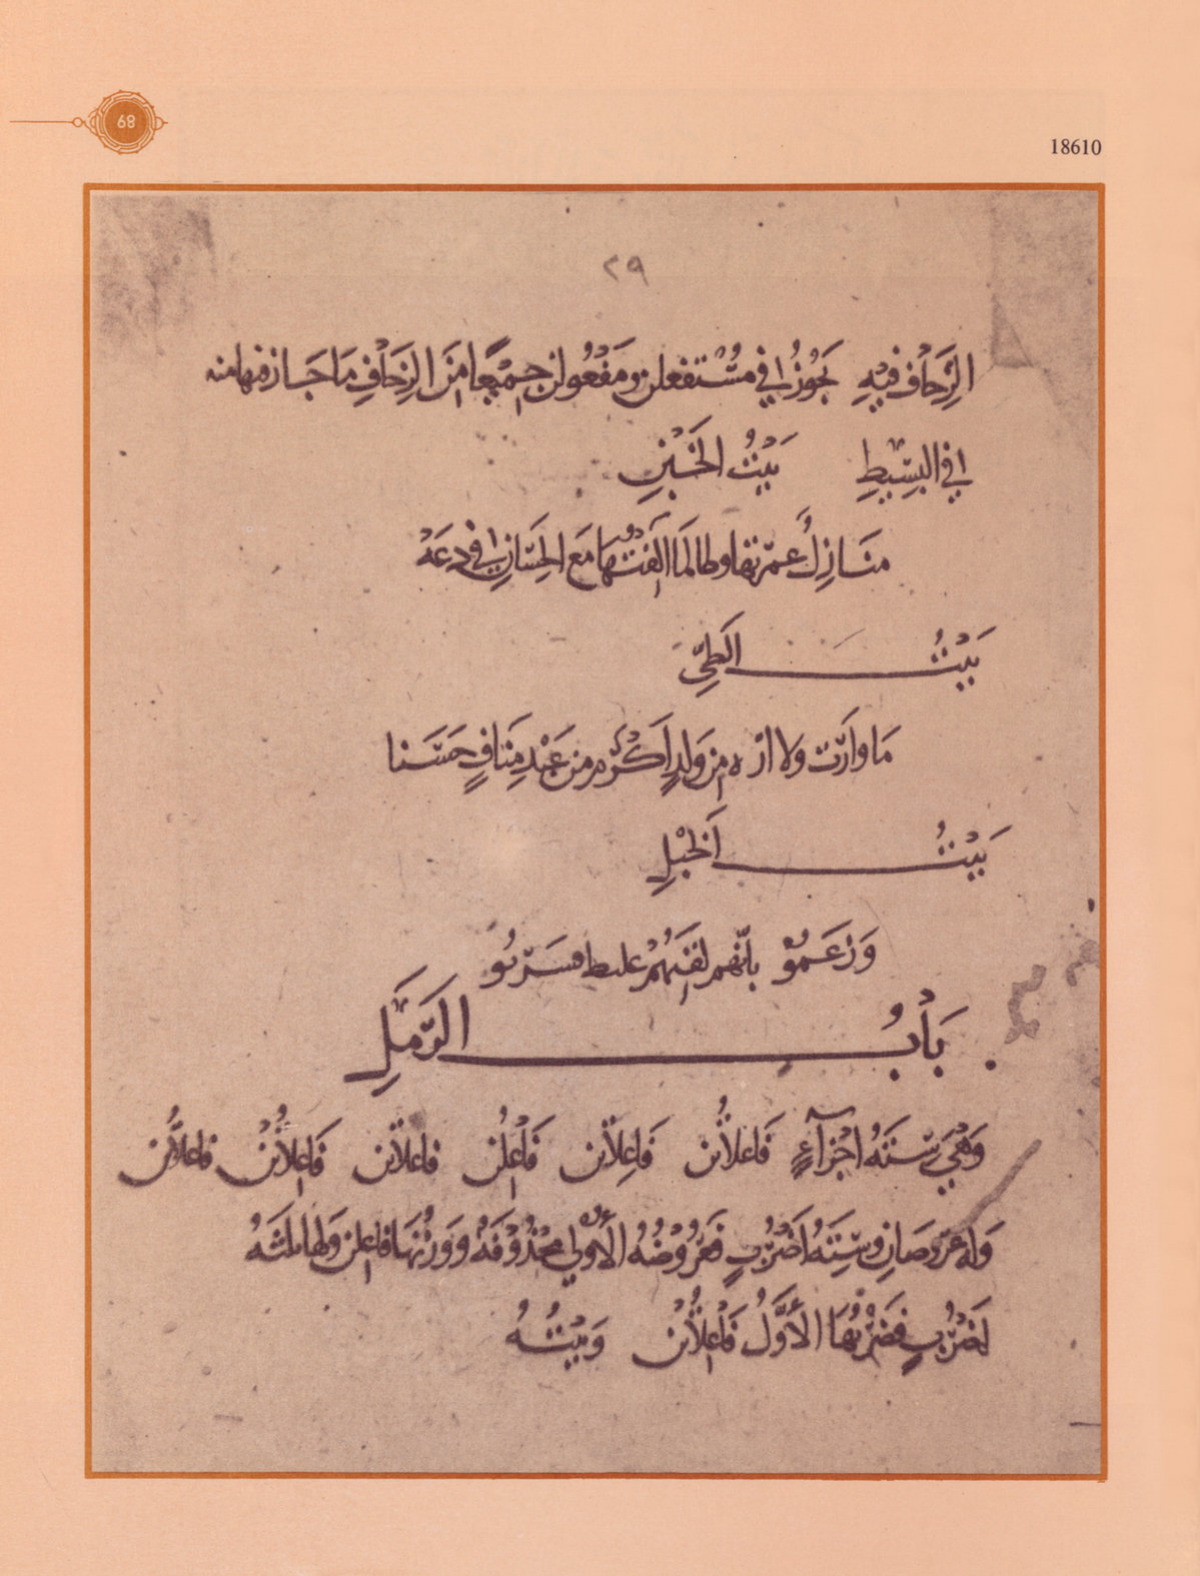 68
18610
٢٩
الزِّحَافُ فِيْهِ يَجُوْزُ فِي مُسْتفعلن ومَفْعُولن جمِيْعًا مِنَ الزِّحَافِ مَا جَاز فيها منه
في البَسِيْطِ بَيْتُ الخَبْنِ
منَازِلٌ عمّرتها وطالمَا الفتُهَا مَع الحِسَانِ في دعَهْ
بَيْتُ الطيِّ
مَا وَلَدَت ولا ارَ ه مِن وَلدٍ اَكْرَم من عَبْدِ مَنَافٍ حَسَنا
بَيْتُ اَلخَبْلِ
وَزعَمُوْ بانّهم لقيَهُمْ علىط فسَرّبُو
بَابُ الرَّمَلِ
وَهْيَ سِتَةُ اجْزَآءٍ فَاعلاتُن فَاعِلاتن فَاْعِلُن فاعلاتن فَاعِلاتُنْ فاعلاتن
وَله عَرُوضَانِ وسِتَةُ اَضْرُبٍ فعَرُوْضُهُ الأُولى مَحْذُوْفَةٌ وَوَزْنُهَا فاعلن وَلها ثلثةُ
اَضْرُبٍ فضَرْبُهَا الأَوَّلُ فَاْعِلاتُن وَبَيْتُهُ